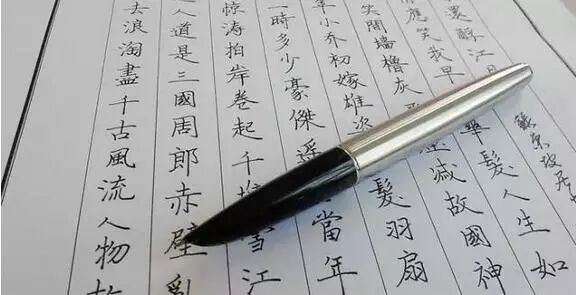 去浪淘盡千古風流人物故
人道是三國周郎赤壁亂
惊涛拍岸卷起千堆雪江
一時多少豪傑遥當年
年小乔初嫁雄姿髮羽扇
笑間墙櫓灰滅故國神
應笑我早華髮人生如
還酹江月